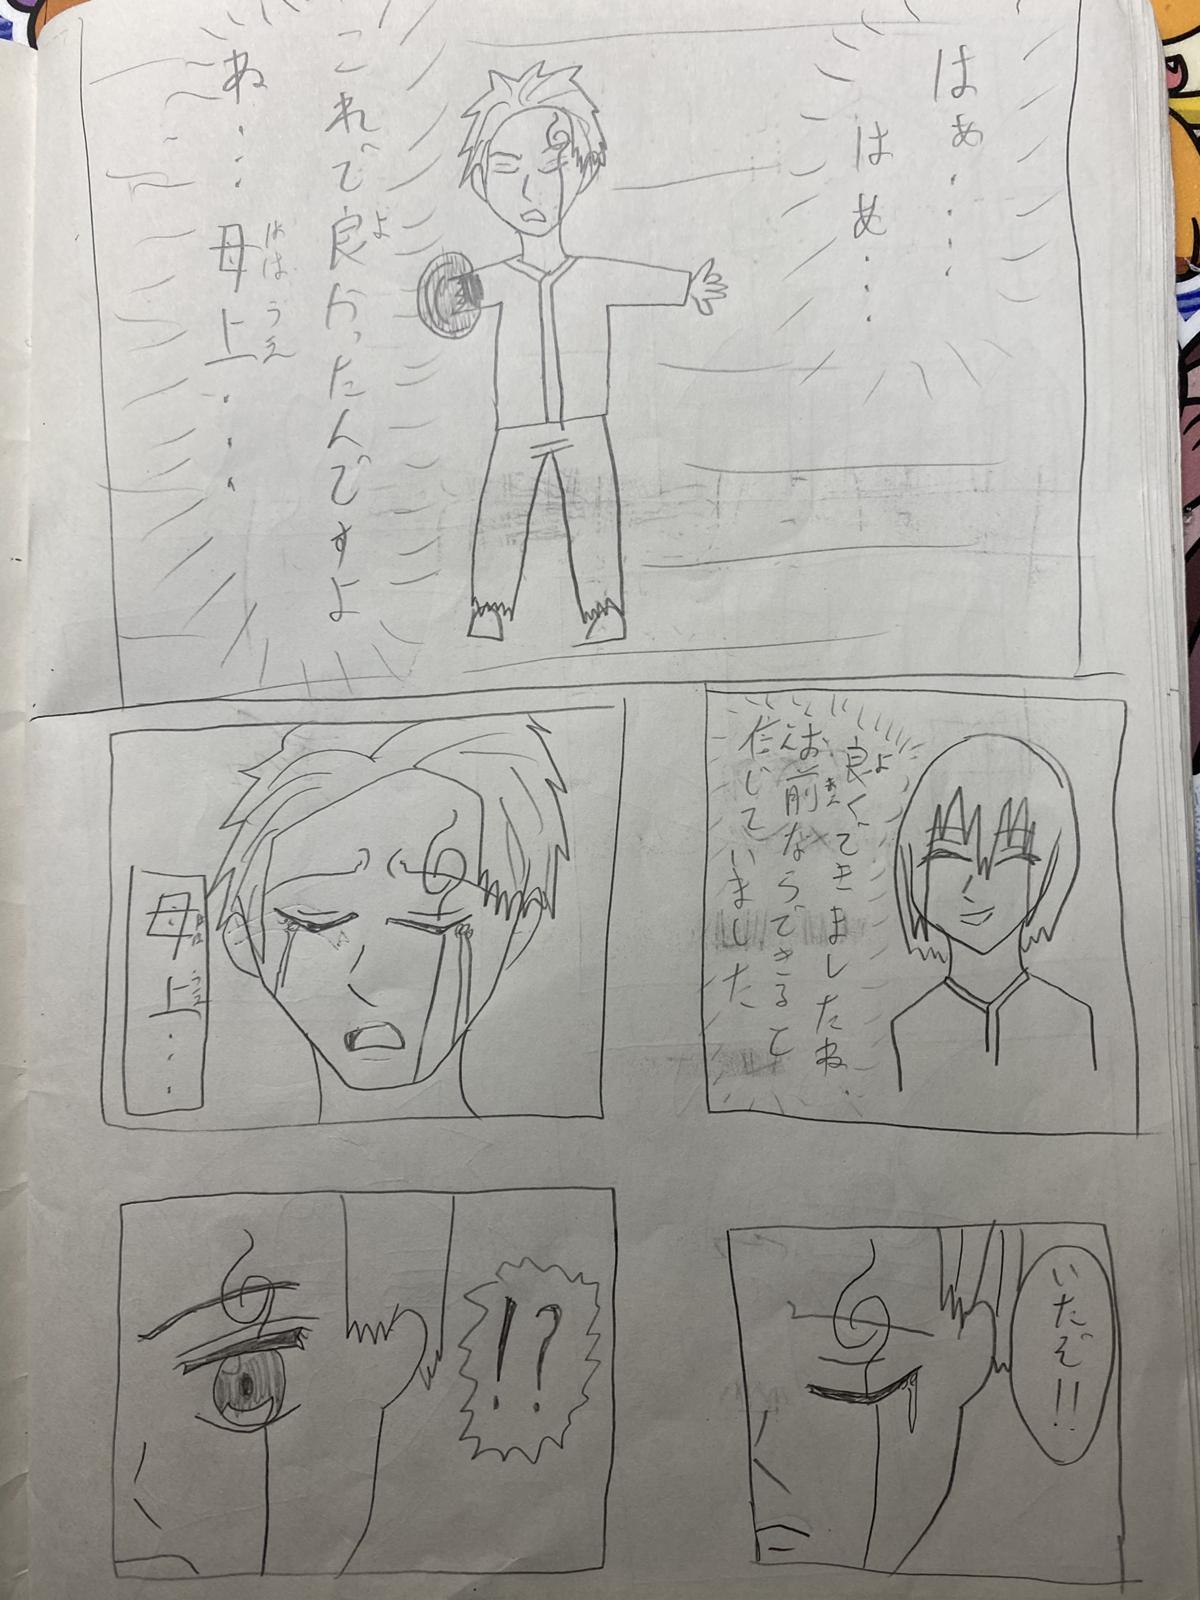 はぁ・・・
はぁ・・・
これで良かったんですよ
よ
ね・・・母上・・・
ははうえ
良くできましたね
よ
お前ならできると
まえ
信じていました
しん
母上・・・
ははうえ
いたぞ!!
!?